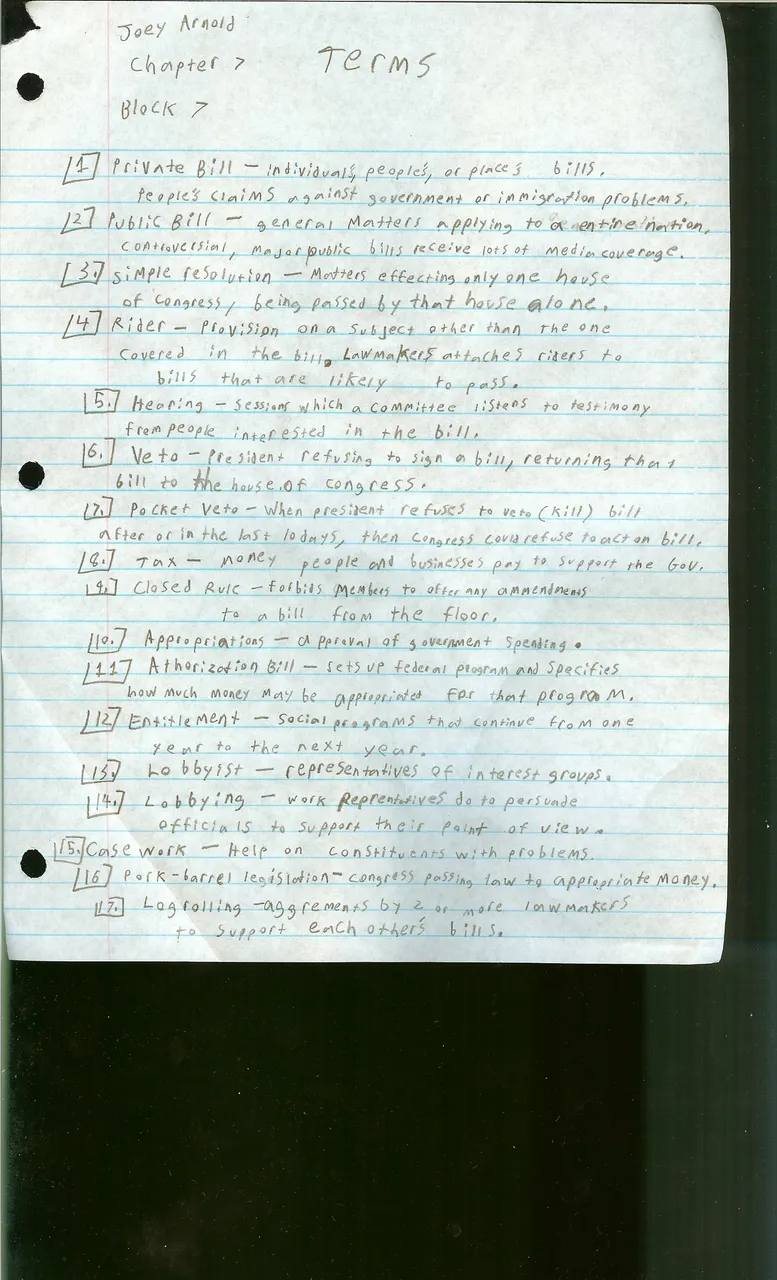 Joey Arnold
Chapter 7 Terms
Block 7
1 Private Bill – individual's, people's, or place's bills.
People's claims against government or immigration problems.
2 Public Bill – general Matters applying to a entire nation,
controversial, major public bills receive lots of media coverage.
3. Simple resolution – Matters effecting only one house
of congress, being passed by that house alone.
4 Rider – Provision on a subject other than the one
covered in the bill. Lawmakers attaches riders to
bills that are likely to pass.
5. Hearing – Sessions which a committee listens to testimony
from people interested in the bill.
6. Veto – President refusing to sign a bill, returning that
bill to the house of congress.
7. Pocket Veto – When president refuses to veto (kill) bill
after or in the last 10 days, then congress could refuse to act on bill.
8. Tax – money people and businesses pay to support the Gov.
9. Closed Rule – forbids Members to offer any ammendments
to a bill from the floor.
10. Appropriations – approval of government spending.
11 Athorization Bill – sets up federal program and specifies
how much money may be appropriated for that program.
12 Entitlement – social programs that continue from one
year to the next year.
13. Lobbyist – representatives of interest groups.
14. Lobbying – work Reprentatives do to persuade
officials to support their point of view.
15. Case work – Help on constituents with problems.
16 Pork-barrel legislation – congress passing law to appropriate money.
17. Logrolling – aggrements by 2 or more lawmakers
to support each other's bills.